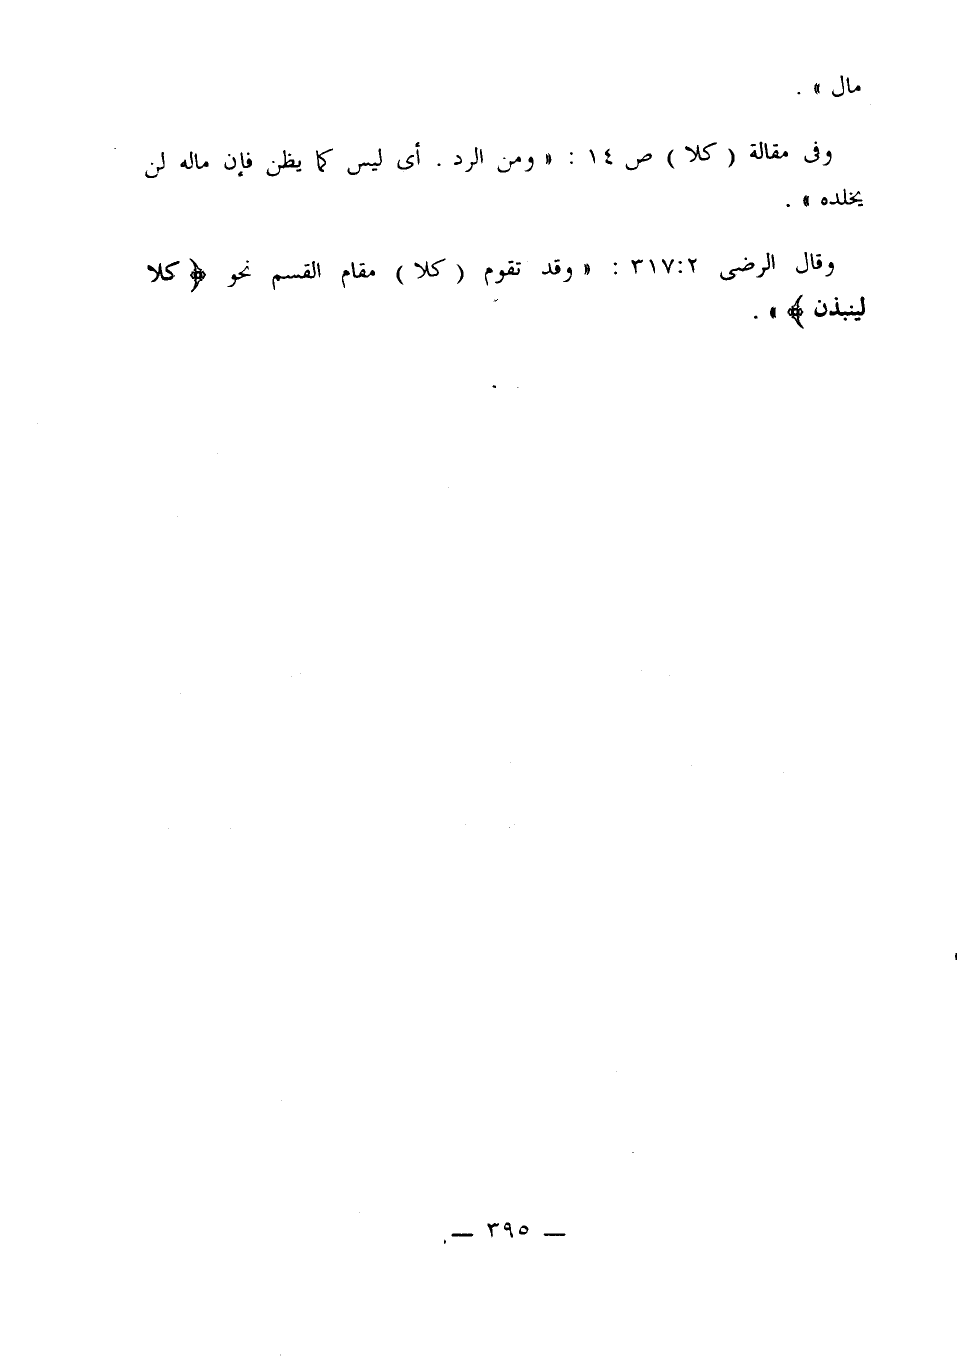 مال » .
وفى مقالة ( كلا ) ص ١٤ : « ومن الرد . أى ليس كما يظن فإن ماله لن
يخلده » .
وقال الرضى ٣١٧:٢ : « وقد تقوم ( كلا ) مقام القسم نحو ﴿ كلا
لينبذن ﴾ » .
— ٣٩٥ —